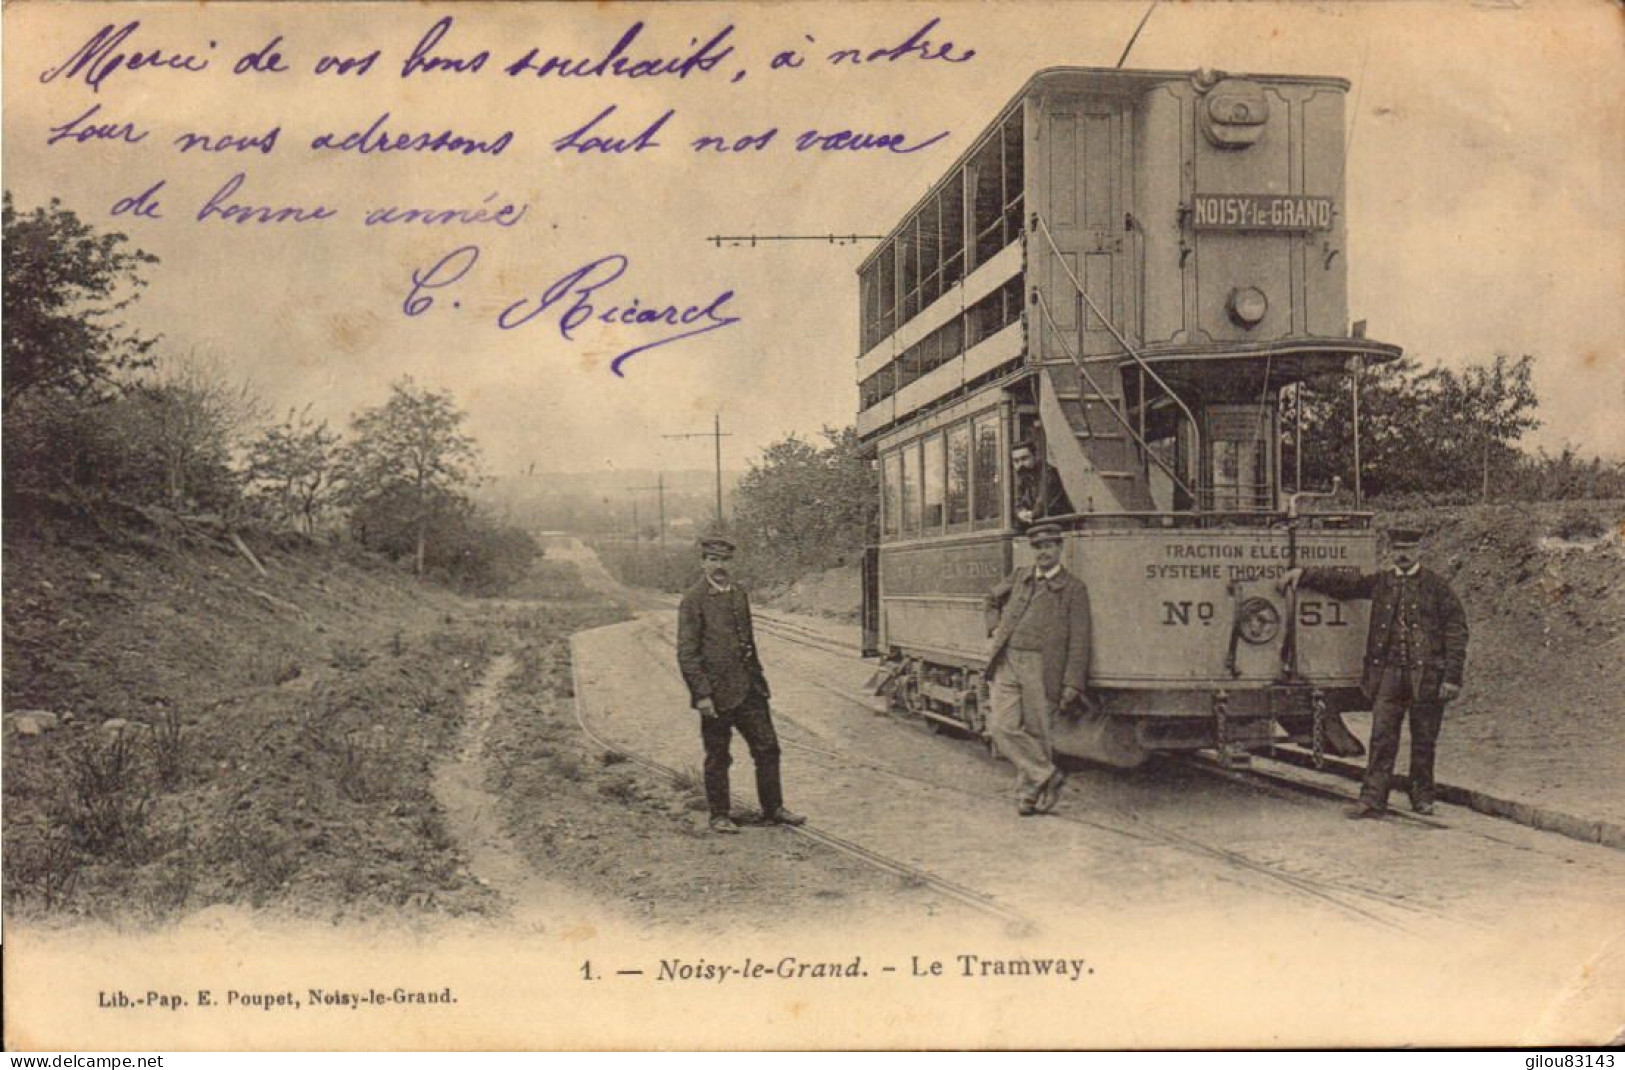 Merci de vos bons souhaits, à notre
tour nous adressons tout nos vœux
de bonne année
C. Ricard
NOISY-le-GRAND
TRACTION ELECTRIQUE
SYSTEME THOMSON HOUSTON
No 51
1. — Noisy-le-Grand. - Le Tramway.
Lib.-Pap. E. Poupet, Noisy-le-Grand.
www.delcampe.net
gilou83143